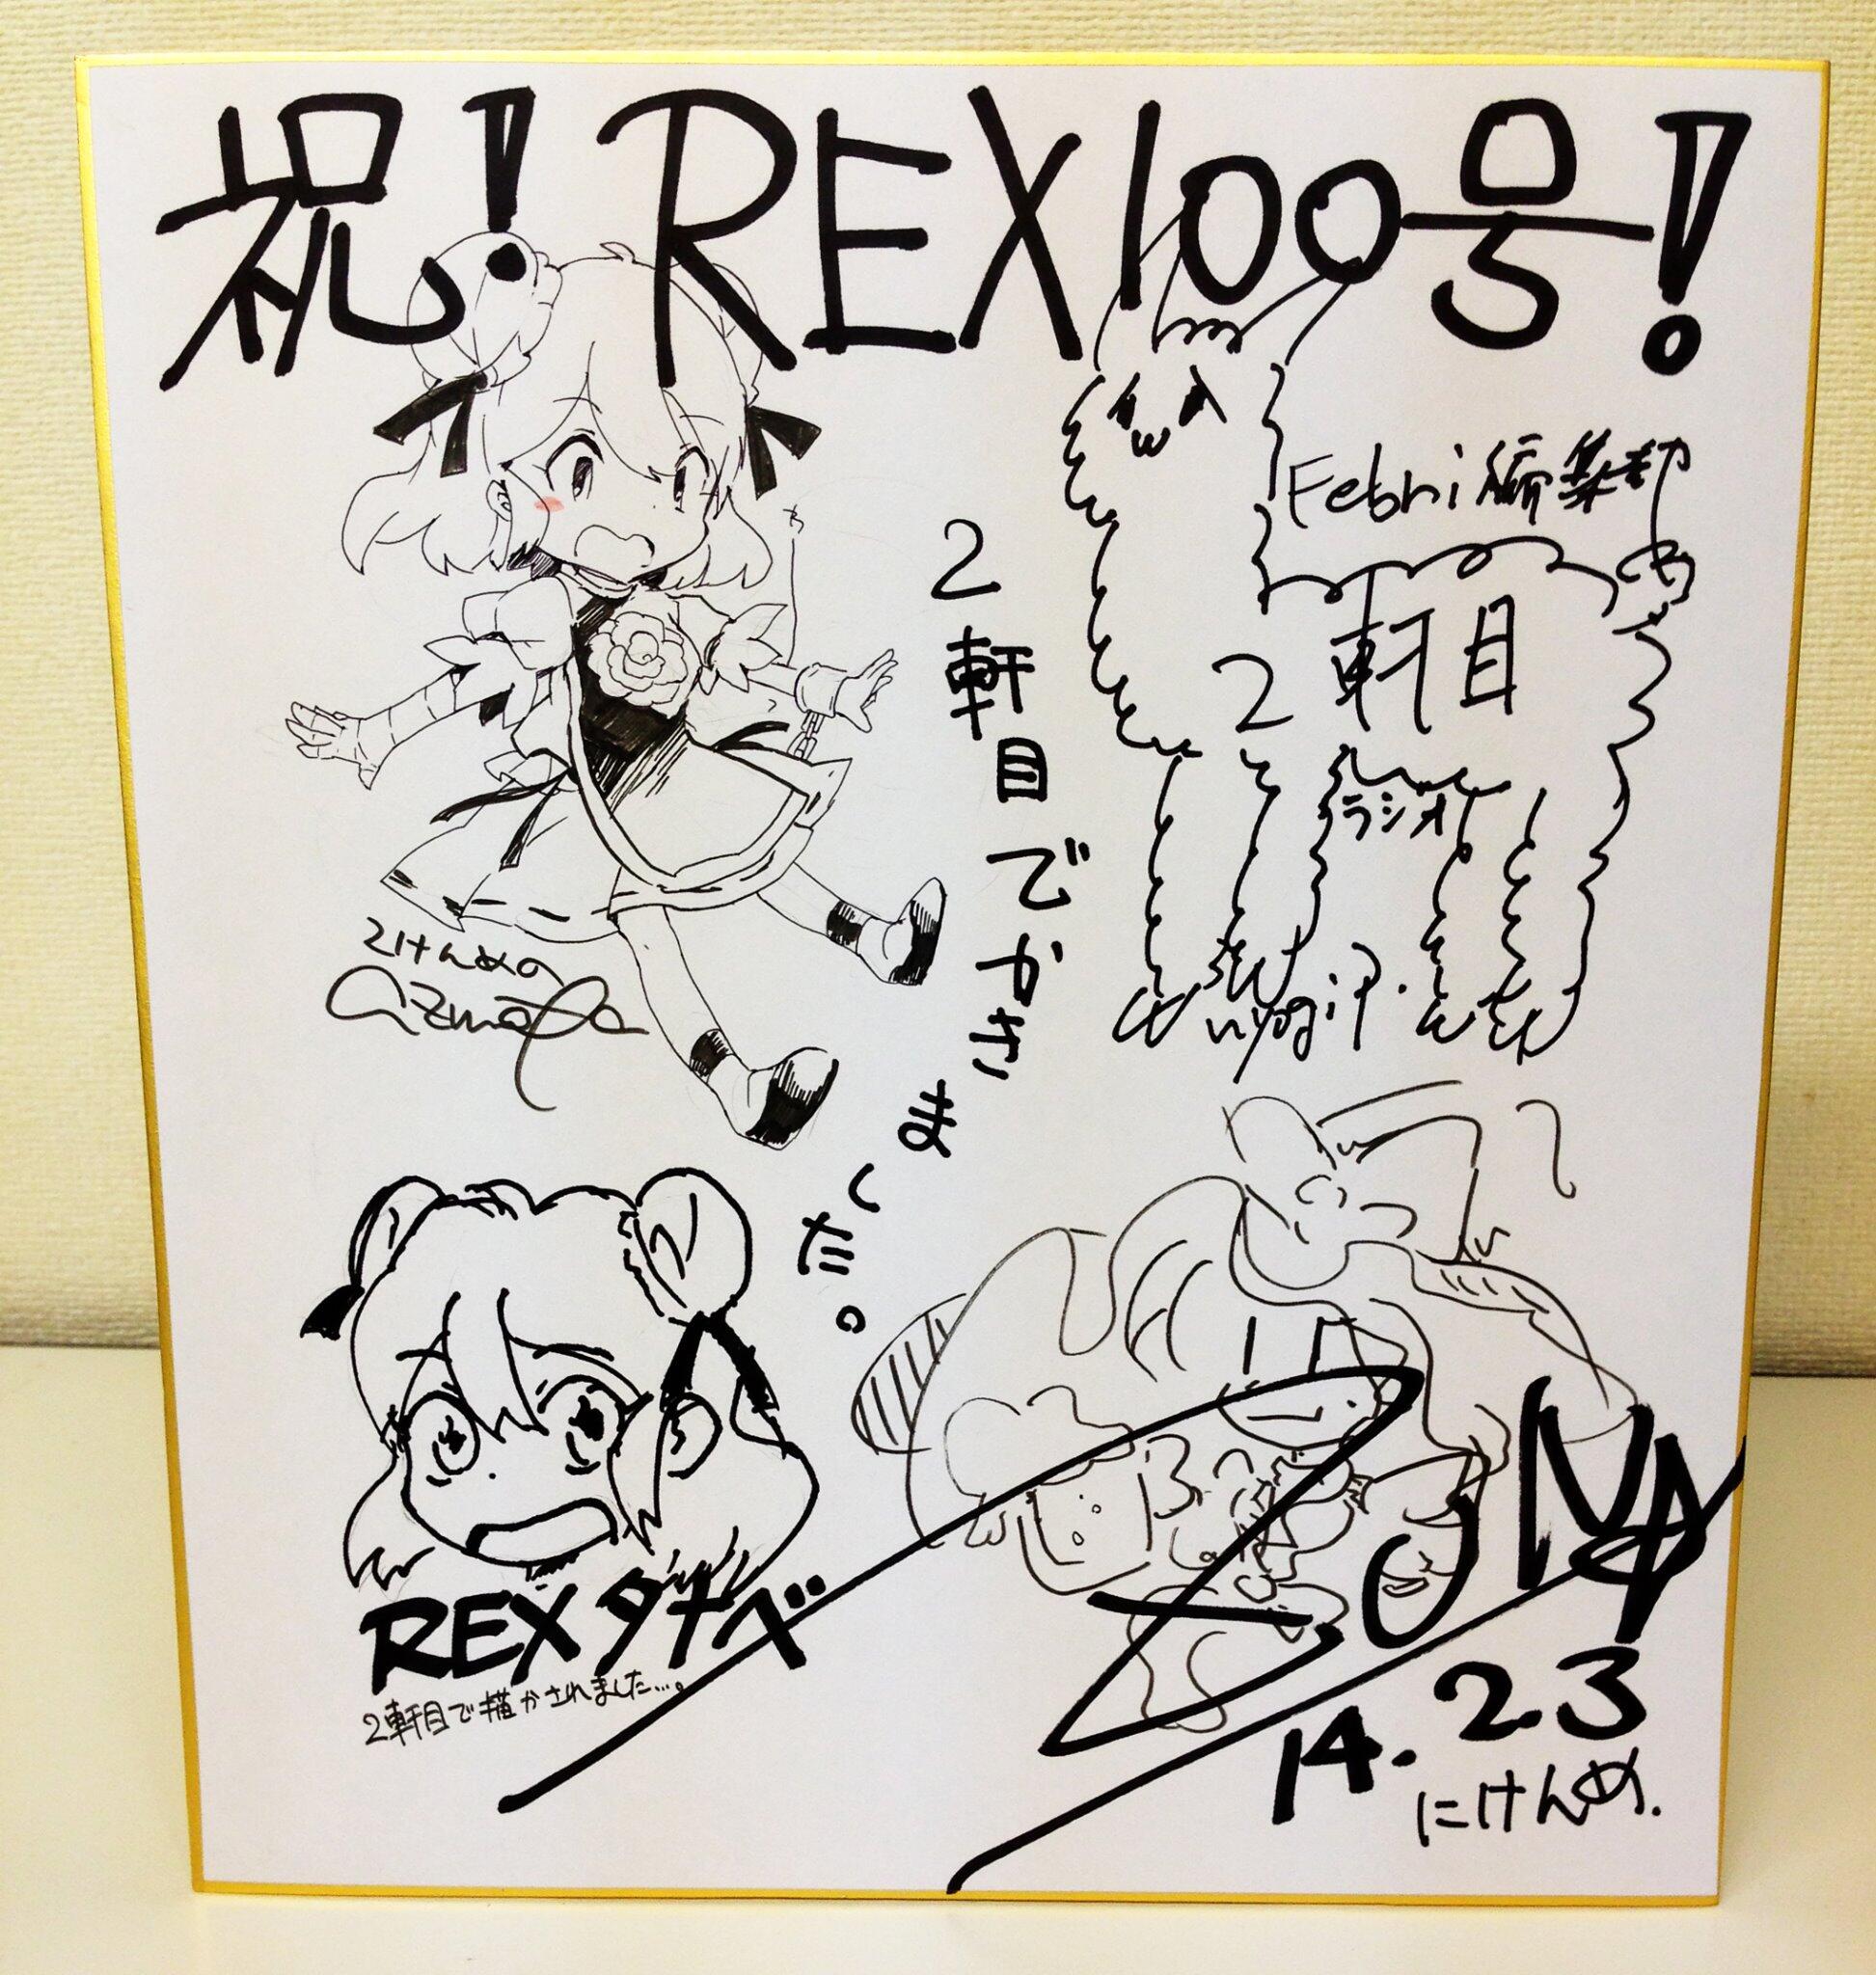 祝！REX100号！
Febri編集部
2軒目
ラジオ
2軒目でかきました。
2けんめの
azmaya
REXダナベ
2軒目で描かされました…。
ZOUNA
14.2.3
にけんめ.